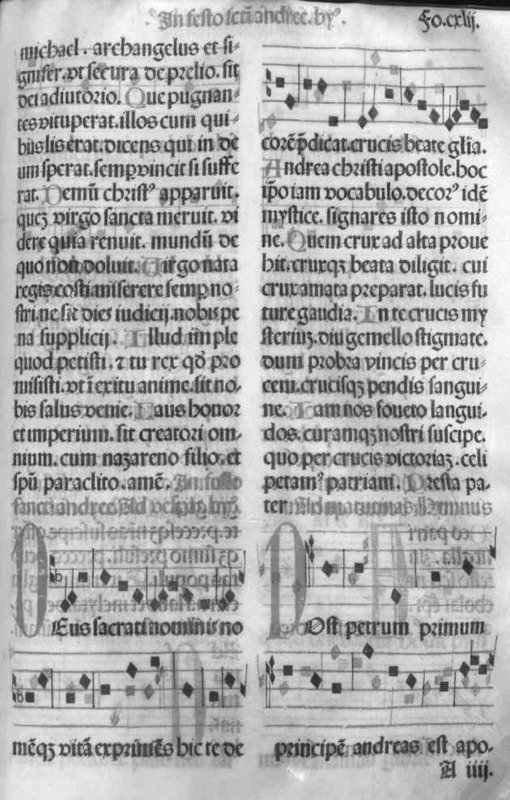 In festo scti andree. hy⁹.
Fo.cxlij.
michael. archangelus et si⸗
gnifer. vt secura de prelio. sit
dei adiutorio. Que pugnan⸗
tes vituperat. illos cum qui⸗
bus lis erat. dicens qui in de
um sperat. semp vincit si suffe
rat. Demũ christ⁹ apparuit.
queꝫ virgo sancta meruit. vi
dere quia renuit. mundũ de
quo non doluit. Uirgo nata
regis costi. miserere semp no⸗
stri. ne sit dies iudicij. nobis pe
na supplicij. Illud imple
quod petisti. ⁊ tu rex qd̃ pro
misisti. vt ĩ exitu anime. sit no⸗
bis salus venie. Laus honor
et imperium. sit creatori om⸗
nium. cum nazareno filio. et
spũ paraclito. amẽ. In festo
sancti andree. Ad vesp̃as. hy⁹.
DEus sacrati nominis no
mẽqꝫ vitã exprimẽs hic te de
corẽ p̃dicat. crucis beate gl̃ia.
Andrea christi apostole. hoc
ip̃o iam vocabulo. decor⁹ idẽ
mystice. signares isto nomi⸗
ne. Quem crux ad alta proue
hit. cruxqꝫ beata diligit. cui
crux amata preparat. lucis fu
ture gaudia. In te crucis my
steriuꝫ. diu gemello stigmate.
dum probra vincis per cru⸗
cem. crucisqꝫ pendis sangui⸗
ne. Iam nos foueto langui⸗
dos. curamqꝫ nostri suscipe.
quo per crucis victoriaꝫ. celi
petam⁹ patriam. Presta pa⸗
ter. Ad matutinas. Hymnus
POst petrum primum
principẽ andreas est apo.
A iiij.